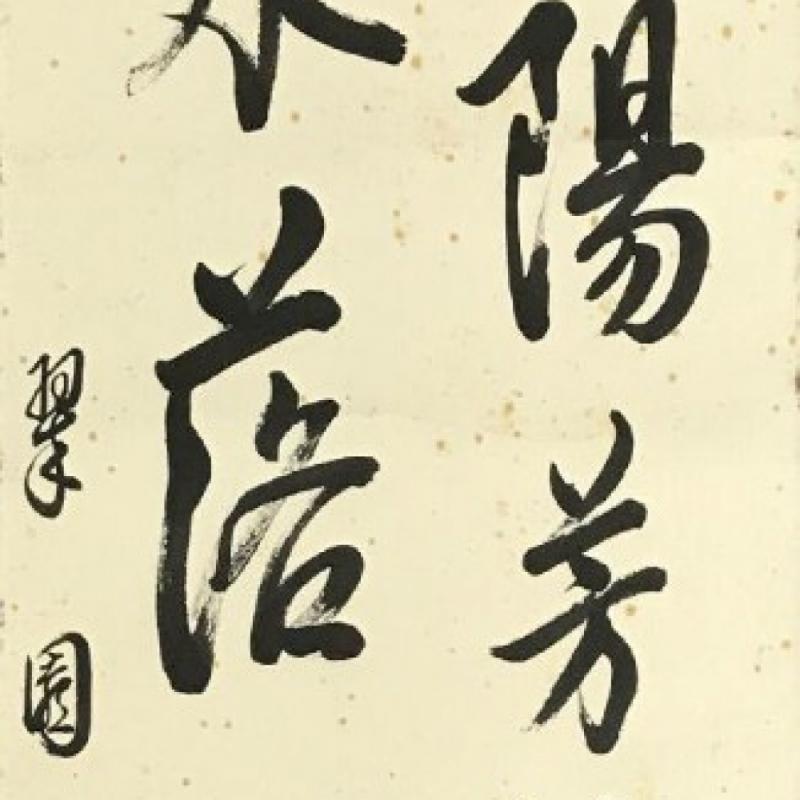 陽芳
落
翠園